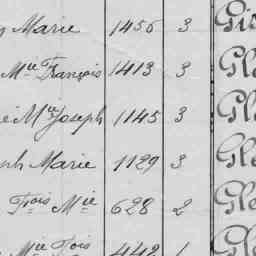 Marie 1456 3
Mie François 1413 3 Gl
Mie Joseph 1145 3 Gl
ph Marie 1129 3 Gle
Fois Mie 628 2 Gle
Mie Fois 442 1 Gle